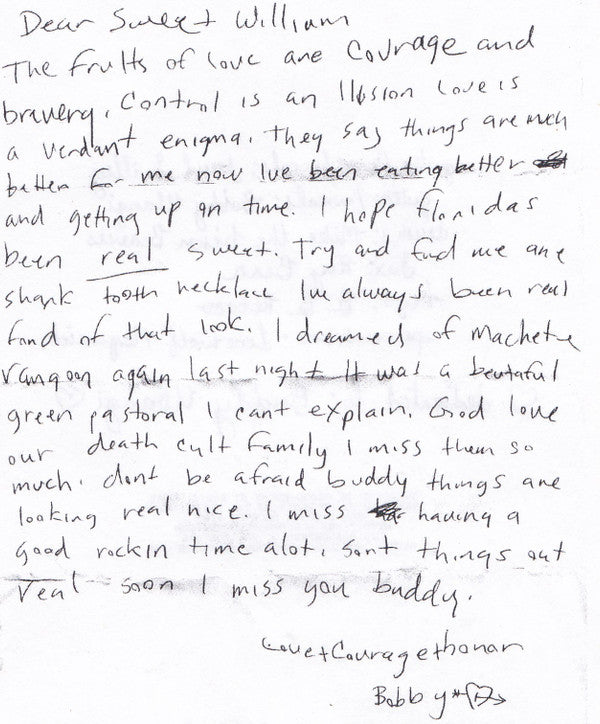 Dear Sweet William
The fruits of love are Courage and
bravery. Control is an Illusion love is
a verdant enigma. They say things are much
better for me now Ive been eating better
and getting up on time. I hope floridas
been real sweet. Try and find me one
shark tooth necklace Ive always been real
fond of that look. I dreamed of Machete
rangoon again last night It was a beutaful
green pastoral I cant explain. God love
our death cult family I miss them so
much. dont be afraid buddy things are
looking real nice. I miss having a
good rockin time alot. Sort things out
real soon I miss you buddy.
Love+Courage+honor
Bobby